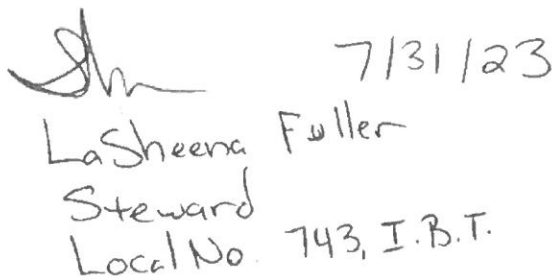 7/31/23
LaSheena Fuller
Steward
Local No. 743, I.B.T.